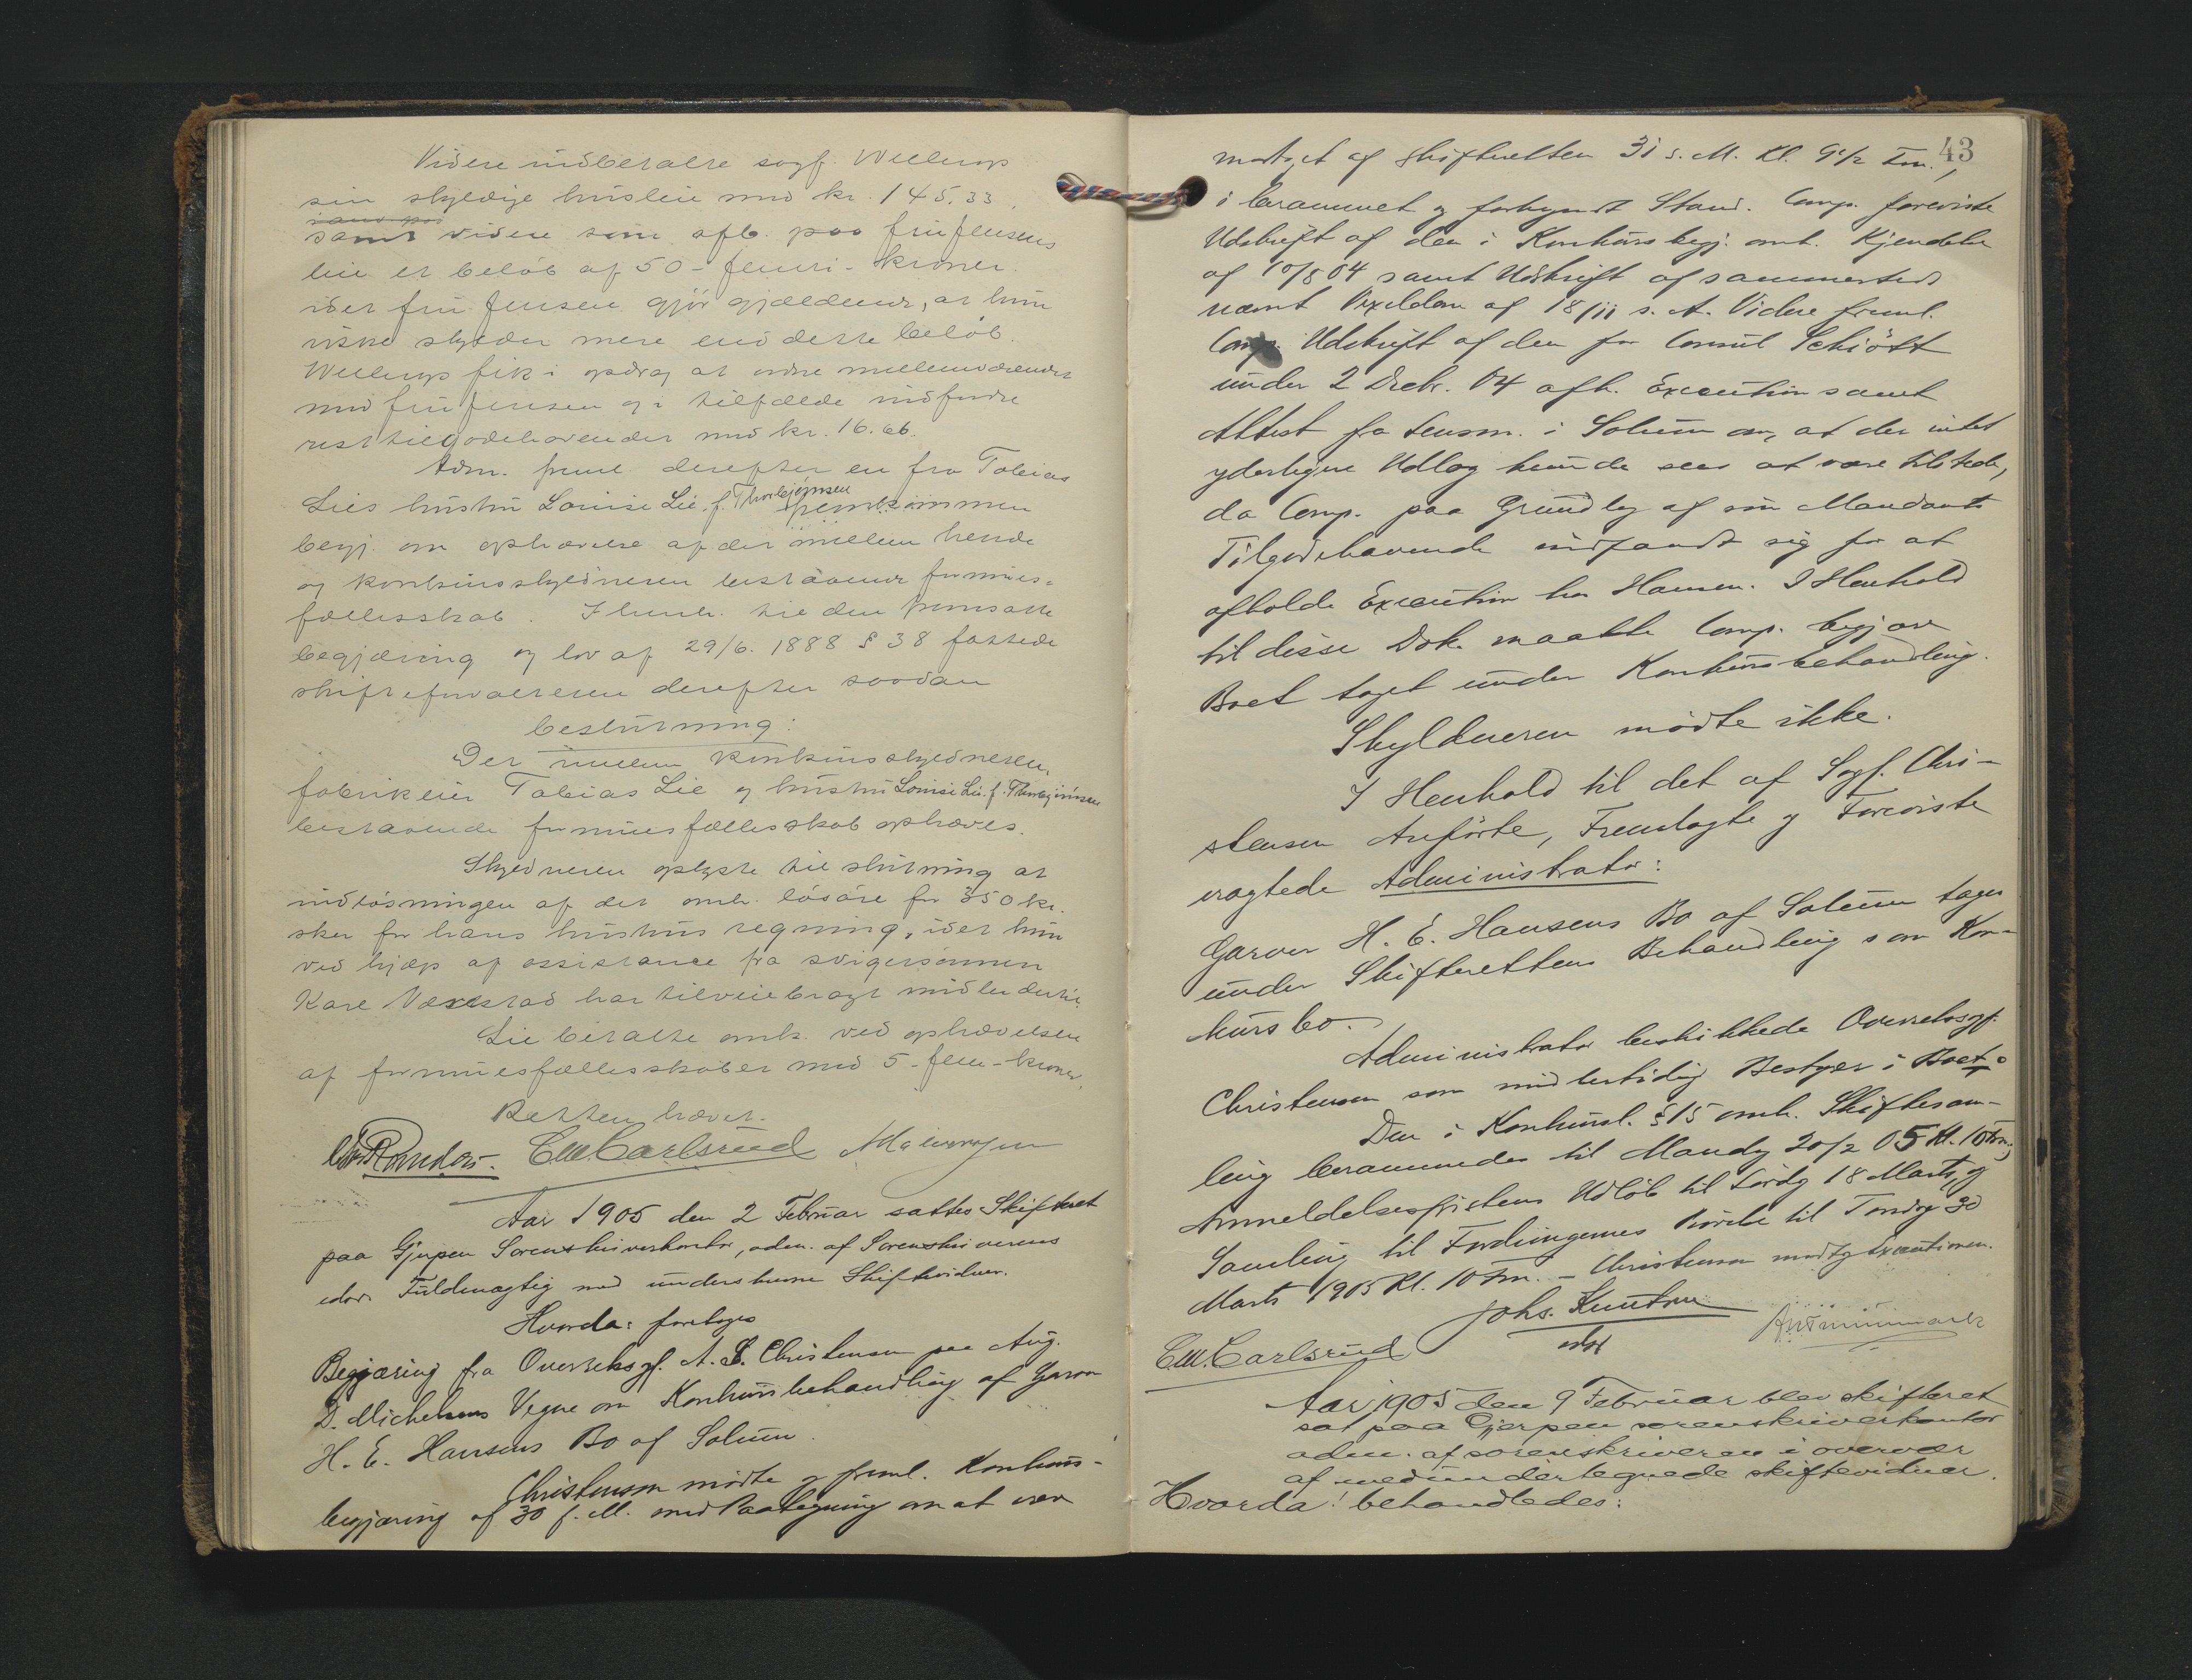 Videre indbetalte sagf. Wellerup
sin skyldige husleie med kr. 145.33,
samt videre som afb. paa fru Jensens
leie et beløb af 50 - femti - kroner.
idet fru Jensen gjør gjældende, at hun
ikke skylder mere end dette beløb.
Wellerup fik i opdrag at ordne mellemværendet
med fru Jensen og i tilfælde indfordre
resttilgodehavendet med kr. 16.66.
Adm. freml. derefter en fra Tobias
Lies hustru Louise Lie, f. Thorbjørnsen fremkommen
begj. om ophævelse af det mellem hende
og konkursskyldneren bestaaende formues-
fællesskab. I henh. til den fremsatte
begjæring og lov af 29/6. 1888 § 38 fattede
skifteforvalteren derefter saadan
beslutning:
Det mellem konkursskyldneren,
fabrikeier Tobias Lie og hustru Louise Lie f. Thorbjørnsen
bestaaende formuesfællesskab ophæves.
Skyldneren oplyste til slutning at
indløsningen af det omh. løsøre for 350 kr.
sker for hans hustrus regning, idet hun
ved hjælp af assistance fra svigersønnen
Kare Næxstad har tilveiebragt midler dertil.
Lie betalte omk. ved ophævelsen
af formuesfællesskabet med 5 - fem - kroner.
Retten hævet.
C.W. Carlsrud
Aar 1905 den 2 Februar sattes Skifteret
paa Gjerpen Sorenskriverkontor, adm. af Sorenskriverens
edsv. Fuldmægtig med underskrevne Skiftevidner.
Hvorda: foretoges
Begjæring fra Overretssagf. A. S. Christensen paa Aug.
D. Michelsens Vegne om Konkursbehandling af Garver
H. E. Hansens Bo af Solum.
Christensen mødte og freml. Konkurs-
begjæring af 30 f. M. med Paategning om at være
43
modtaget af Skifteretten 31 s. M. Kl. 9 1/2 Fm.,
i berammet og forkyndt Stand. Comp. foreviste
Udskrift af den i Konkursbegj. omh. Kjendelse
af 10/8 04 samt Udskrift af sammesteds
nævnt Vexeldom af 18/11 s. A. Videre freml.
Comp. Udskrift af den for Consul Schiøtt
under 2 Decbr. 04 afh. Execution samt
Attest fra Lensm. i Solum om, at der intet
yderligere Udlæg kunde sees at være tilstede,
da Comp. paa Grundlag af sin Mandants
Tilgodehavende indfandt sig for at
afholde Execution hos Hansen. I Henhold
til disse Dok. maatte Comp. begjære
Boet taget under Konkursbehandling.
Skyldneren mødte ikke.
I Henhold til det af Sagf. Chri-
stensen Anførte, Fremlagte og Foreviste
eragtede Administrator:
Garver H. E. Hansens Bo af Solum tages
under Skifterettens Behandling som Kon-
kursbo.
Administrator beskikkede Overretssagf.
Christensen som midlertidig Bestyrer i Boet.
Den i Konkursl. § 15 omh. Skiftesam-
ling berammedes til Mandag 20/2 05 Kl. 10 Fm.,
Anmeldelsesfristens Udløb til Lørdag 18 Marts, og
Samling til Fordringernes Prøvelse til Torsdag 30
Marts 1905 Kl. 10 Fm. - Christensen modtg Executionen.
Johs. Knutson
edsf
C.W. Carlsrud
Aar 1905 den 9 Februar blev skifteret
sat paa Gjerpen sorenskriverkontor
adm. af sorenskriveren i overvær
af medundertegnede skiftevidner.
Hvorda! behandledes: